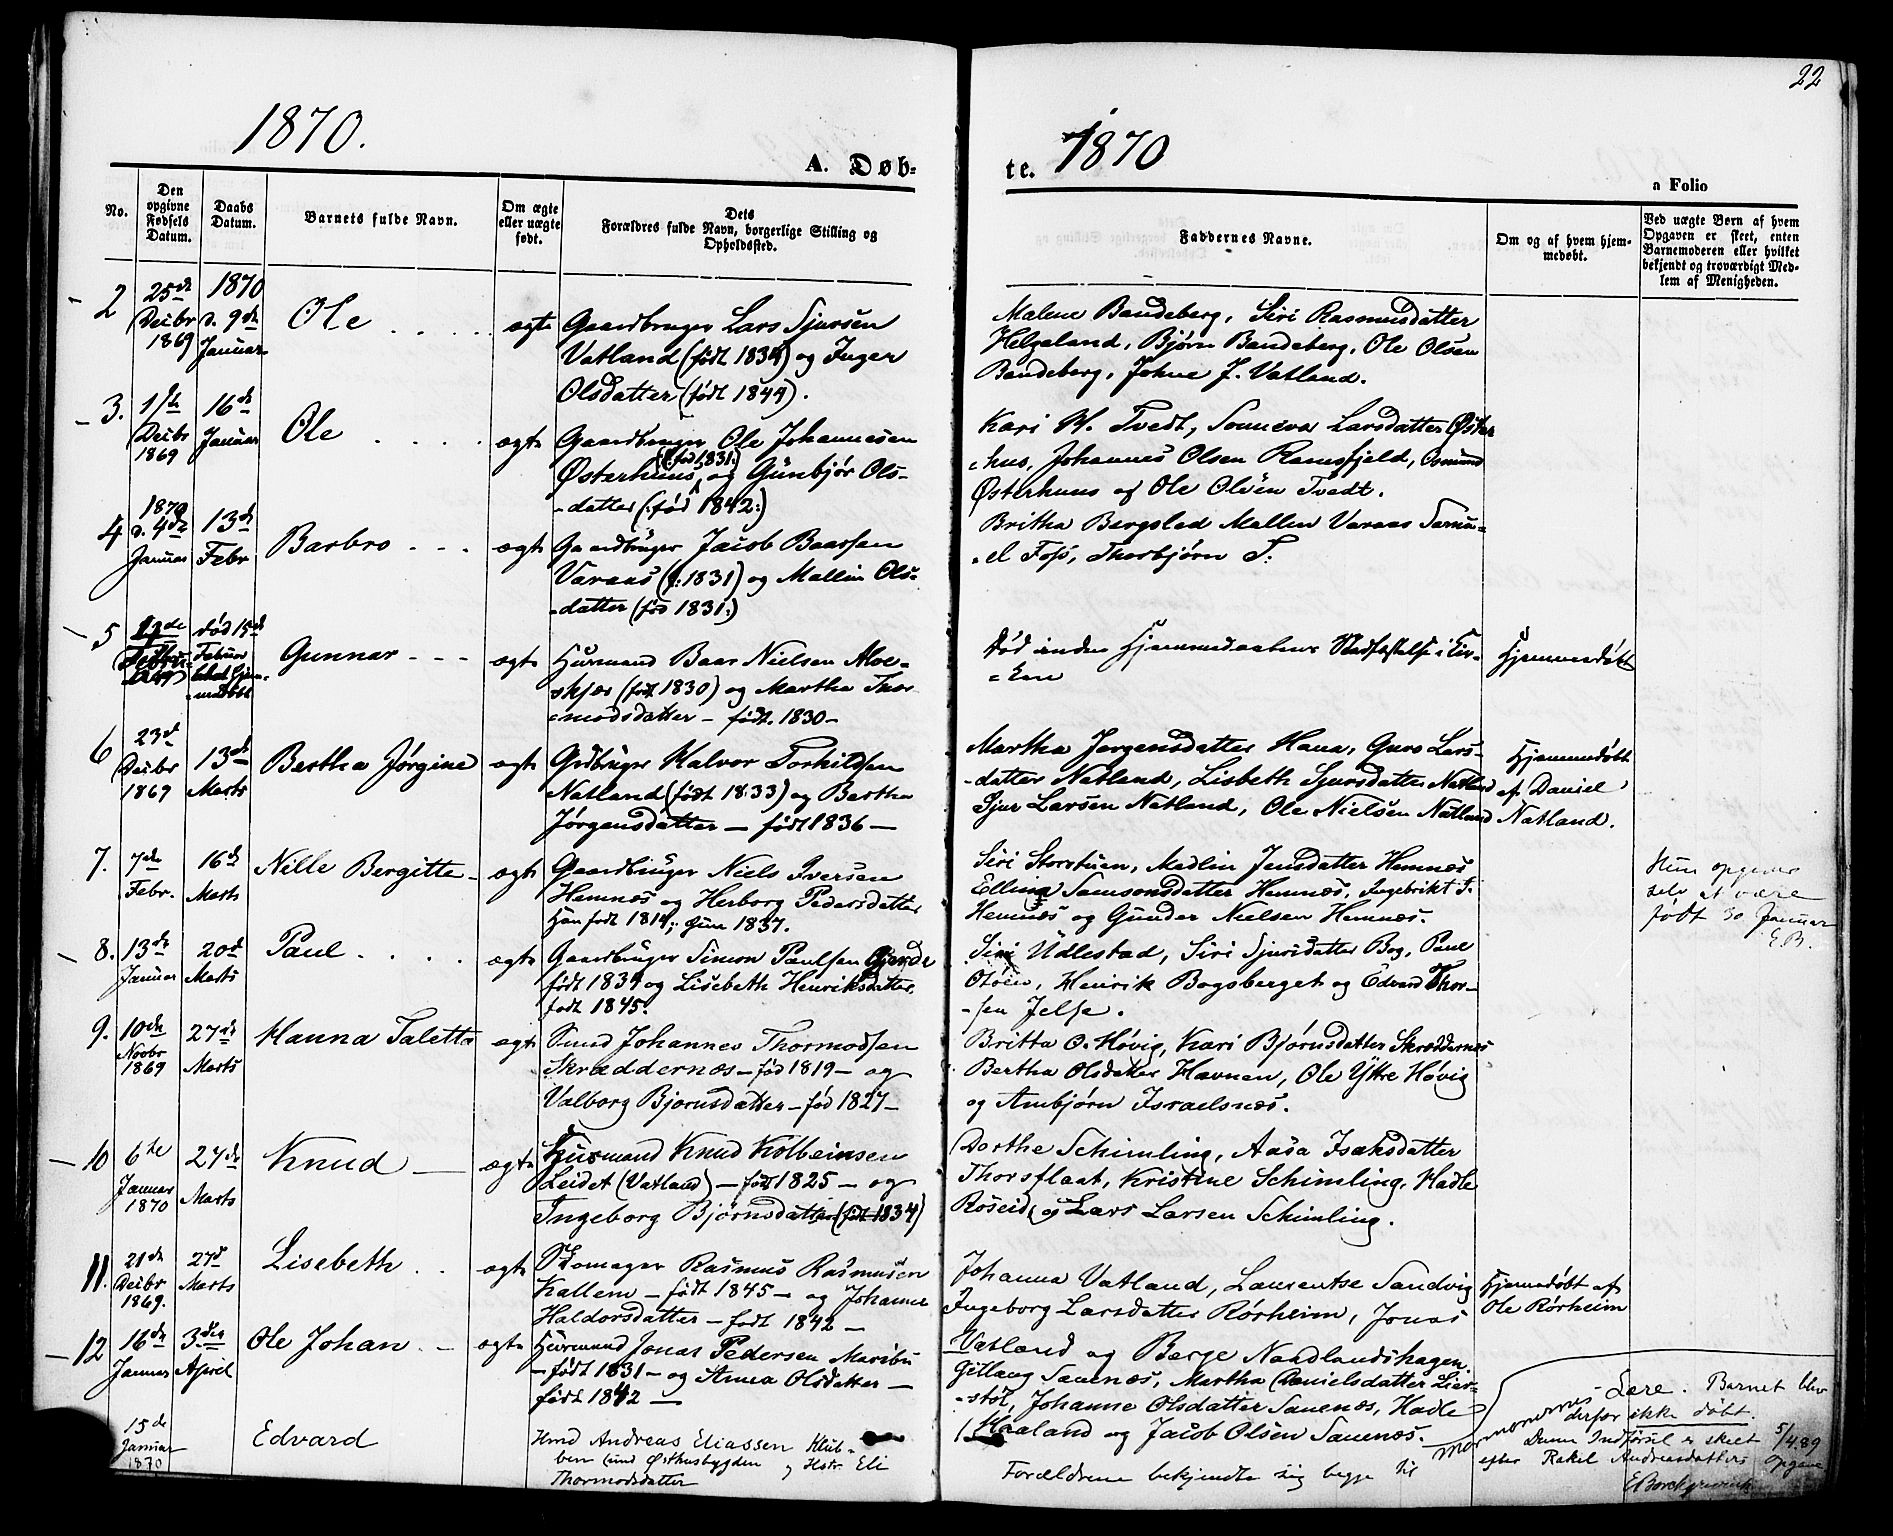 22
1870.
1870
A. Døb-
te.
a Folio
No.
Den opgivne Fødsels Datum.
Daabs Datum.
Barnets fulde Navn.
Om ægte eller uægte født.
Dets Forældres fulde Navn, borgerlige Stilling og Opholdssted.
Faddernes Navne.
Om og af hvem hjemmedøbt.
Ved uægte Børn af hvem Opgaven er skeet, enten Barnemoderen eller hvilket bekjendt og troværdigt Medlem af Menigheden.
2
25de Decbr 1869
1870 d. 9de Januar
Ole
ægte
Gaardbruger Lars Sjursen
Vatland (født 1834) og Inger
Olsdatter (født 1844).
Malene Bandeberg, Siri Rasmusdatter
Helgaland, Bjørn Bandeberg, Ole Olsen
Bandeberg, Johne J. Vatland.
3.
1ste Decbr 1869
16de Januar
Ole
ægte
Gaardbruger Ole Johannesen
Østerhuus (:fød 1831:) og Gunbjør Ols-
-datter (:fød 1842:)
Kari W. Tvedt, Sonneva Larsdatter Øster
-hus, Johannes Olsen Ramsfjeld, Osmund
Østerhuus og Ole Olsen Tvedt.
4
1870 d. 4de Januar
13de Febr
Barbro
ægte
Gaardbruger Jacob Baarsen
Varaas (f: 1831) og Mallin Ols-
-datter (fød 1831:)
Britha Bergstad Mallin Varaas Samu-
-el Foss, Thorbjørn T:
5
død 15de Februar
Gunnar
ægte
Husmand Baar Nielsen Alve-
skjær (født 1830) og Martha Thor
-modsdatter - født. 1830 -
Død inden Hjemmedaabens Stadfæstelse i Kir-
-ken
Hjemmedøbt
6
23de Decbr 1869
13de Marts
Bertha Jørgine
ægte
Grdbruger Halvor Torkildsen
Natland (født 1833) og Bertha
Jørgensdatter - født 1836 -
Martha Jørgensdatter Hana, Guro Lars-
-datter Natland, Lisbeth Sjursdatter Natland
Sjur Larsen Natland, Ole Nielsen Natland
Hjemmedøbt
af Daniel
Natland.
7.
7de Febr.
16de Marts
Nille Bergitte
ægte
Gaardbruger Niels Iversen
Hemnes og Herborg Pedersdatter
Han født 1814; Hun 1837.
Siri Storstuen, Madlin Jensdatter Hemnæs
Ellina Samsonsdatter Hemnæs, Ingebrikt T.
Hemnæs og Gunder Nielsen Hemnæs.
Hun opgiver
selv at være
født 30 Januar
E.B.
8.
13de Januar
20de Marts
Paul
ægte
Gaardbruger Simon Paulsen Gjerde
født 1834 og Lisebeth Henriksdatter
født 1845.
Siri Udlestad, Siri Sjursdatter Bog, Paul
Otøien, Henrik Bogsberget og Edvard Thor-
-sen Jelse.
9.
10de Novbr 1869
27de Marts
Hanna Taletta
ægte
Smed Johannes Thormodsen
Skræddernæs - fød 1819 - og
Valborg Bjørnsdatter - fød 1827 -
Britta O. Høvig, Kari Bjørnsdatter Skræddernæs
Bertha Olsdatter Havnen, Ole Yttre Høvig
og Ambjørn Israelsnæs.
10
6te Januar 1870
27de Marts
Knud
ægte
Husmand Knud Kolbeinsen
Leidet (Vatland) - født 1825 - og
Ingeborg Bjørnsdatter (født 1834)
Dorthe Schimling, Aasa Isaksdatter
Thorsflaat, Kristine Schimling, Hadle
Røseid og Lars Larsen Schimling.
11.
21de Decbr 1869.
27d Marts
Lisebeth
ægte
Skomager Rasmus Rasmusen
Kallem - født 1845 - og Johanne
Haldorsdatter - født 1842 -
Johanna Vatland, Laurentse Sandvig
Ingeborg Larsdatter Rørheim, Jonas
Vatland og Berge Nordlandshagen.
Hjemmedøbt af
Ole Rørheim
12
16de Januar
3die April
Ole Johan
ægte
Husmand Jonas Pedersen Maribu
- født 1831 - og Anna Olsdatter -
født 1842 -
Gitlaug Sauenæs, Martha Danielsdatter Lier-
-støl, Johanne Olsdatter Sauenæs, Hadle
Haaland og Jacob Olsen Sauenæs.
15de Januar 1870
Edvard
Hmd Andreas Eliassen Klub-
ben (und Østhusbygden og Hstr. Eli
Thormodsdatter
Forældrene bekjendte sig begge til
Mormonernes
Lære. Barnet blev
derfor ikke døbt.
Denne Indførsel er skeet 5/4.89
efter Rakel Andreasdatters Opgave.
E Borchgrevink